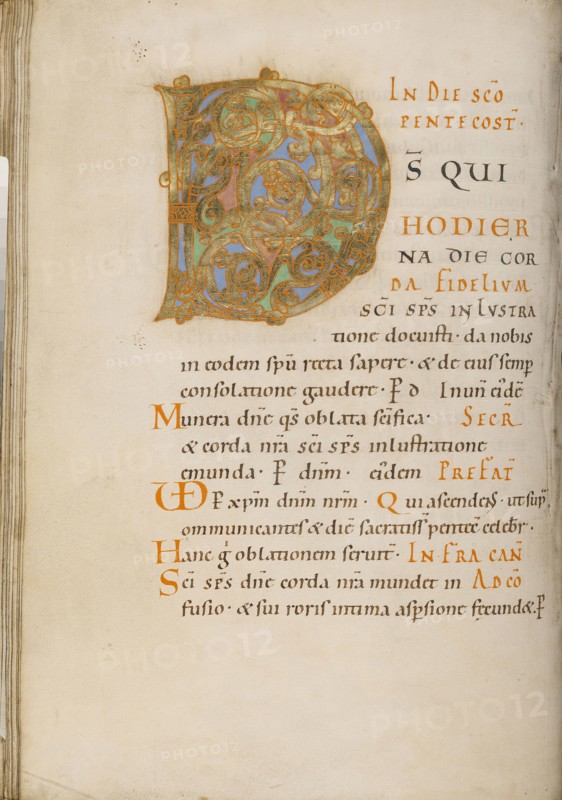 IN DIE SCŌ
PENTECOST̄·
D S̄ QUI
HODIER
NA DIE COR
DA FIDELIVM
SCĪ SPS̄ INLVSTRA
tione docuisti· da nobis
in eodem spū recta sapere· & de eius semp̄
consolatione gaudere· P̄ D̄ In un̄ eide͞
Munera dn̄e qs̄ oblata sc̄ifica· SECR̄
& corda nr̄a sc̄i sp̄s inlustratione
emunda· P̄ dn̄m· eidem PREFAT̄
UD P̄ xp̄m dn̄m nr̄m· Qui ascendens· ut sup̄
ommunicantes & die͞ sacratiss̄ pentec̄ celebr̄·
Hanc ḡ oblationem seruit̄· INFRA CAN̄
Sc̄i sp̄s dn̄e corda nr̄a mundet in AD CŌ
fusio· & sui roris intima asp̄sione fecund&· P̄
PHOTO12